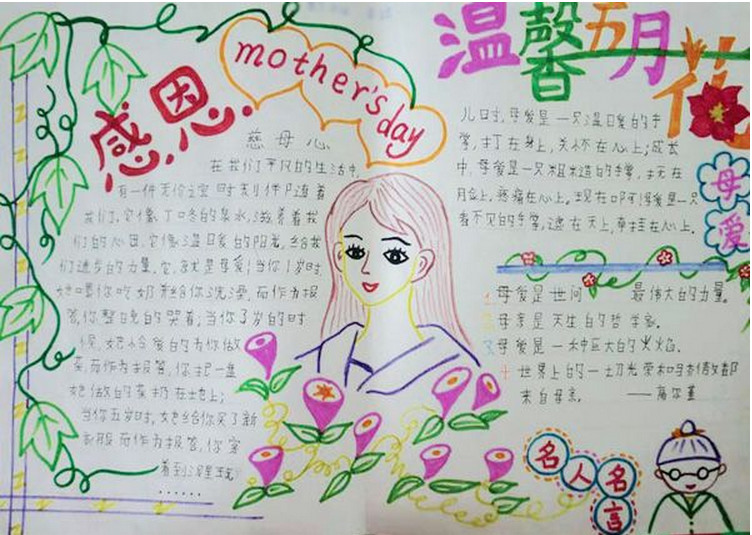 感恩
mother's day
慈母心
在我们平凡的生活中,
有一件无价之宝时刻伴随着
我们,它像丁冬的泉水,滋养着我
们的心田,它像温暖的阳光,给我
们进步的力量。它,就是母爱!当你1岁时,
她喂你吃奶并给你洗澡,而作为报
答,你整晚的哭着;当你3岁的时
候,她怜爱的为你做
菜,而作为报答,你把一盘
她做的菜扔在地上;
当你五岁时,她给你买了新
衣服而作为报答,你穿
着到泥里玩
······
温馨五月花
儿时,母爱是一只温暖的手
掌,打在身上,关怀在心上;成长
中,母爱是一只粗糙的手掌,
上,疼痛在心上。现在母爱是一只
看不见的手掌,远在天上,牵挂在心上。
母爱
1 母爱是世间最伟大的力量。
2 母亲是天生的哲学家。
3 母爱是一种巨大的火焰。
世界上的一切光荣和骄傲都
来自母亲。——高尔基
名人名言